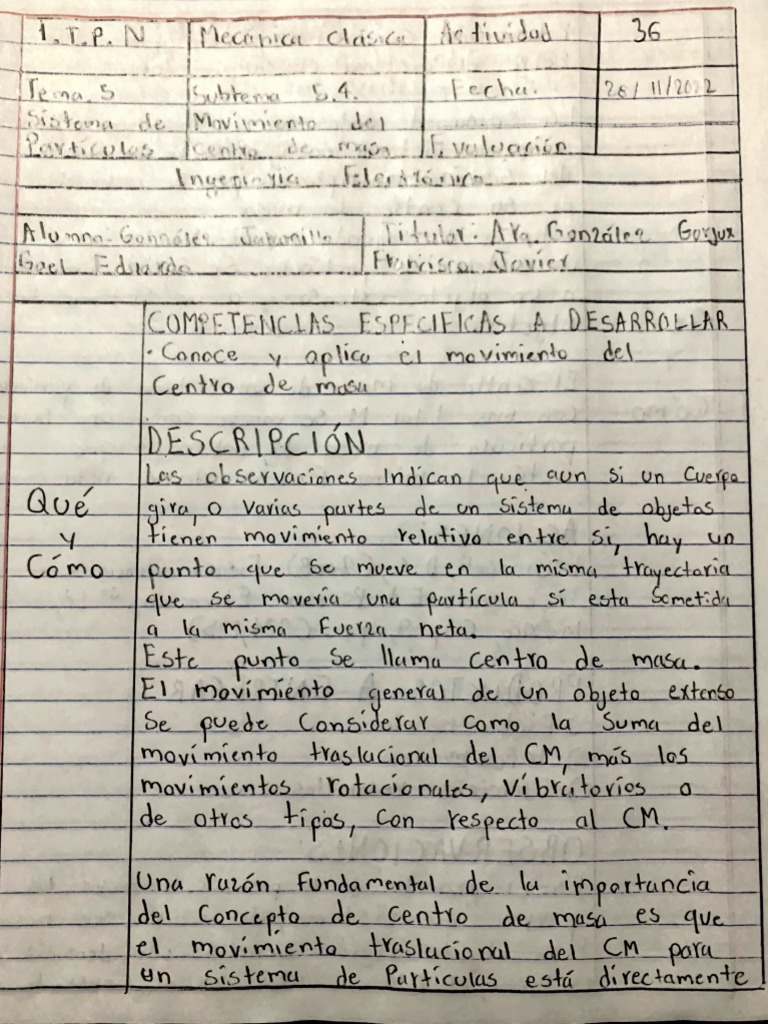 I.T.P.N Mecánica Clásica Actividad 36
Tema. 5 Subtema 5.4. Fecha. 28/11/2022
Sistema de Movimiento del
Partículas centro de masa Evaluación
Ingeniería Electrónica
Alumno: González Jaramillo Titular: Arq. González Gorjux
Gael Eduardo Francisco Javier
COMPETENCIAS ESPECIFICAS A DESARROLLAR
· Conoce y aplica el movimiento del
Centro de masa
DESCRIPCIÓN
Las observaciones indican que aun si un cuerpo
Qué gira, o varias partes de un sistema de objetos
y tienen movimiento relativo entre si, hay un
Cómo punto que se mueve en la misma trayectoria
que se movería una partícula si esta sometida
a la misma fuerza neta.
Este punto se llama centro de masa.
El movimiento general de un objeto extenso
se puede considerar como la suma del
movimiento traslacional del CM, más los
movimientos rotacionales, vibratorios o
de otros tipos, con respecto al CM.
Una razón fundamental de la importancia
del concepto de centro de masa es que
el movimiento traslacional del CM para
un sistema de Partículas está directamente